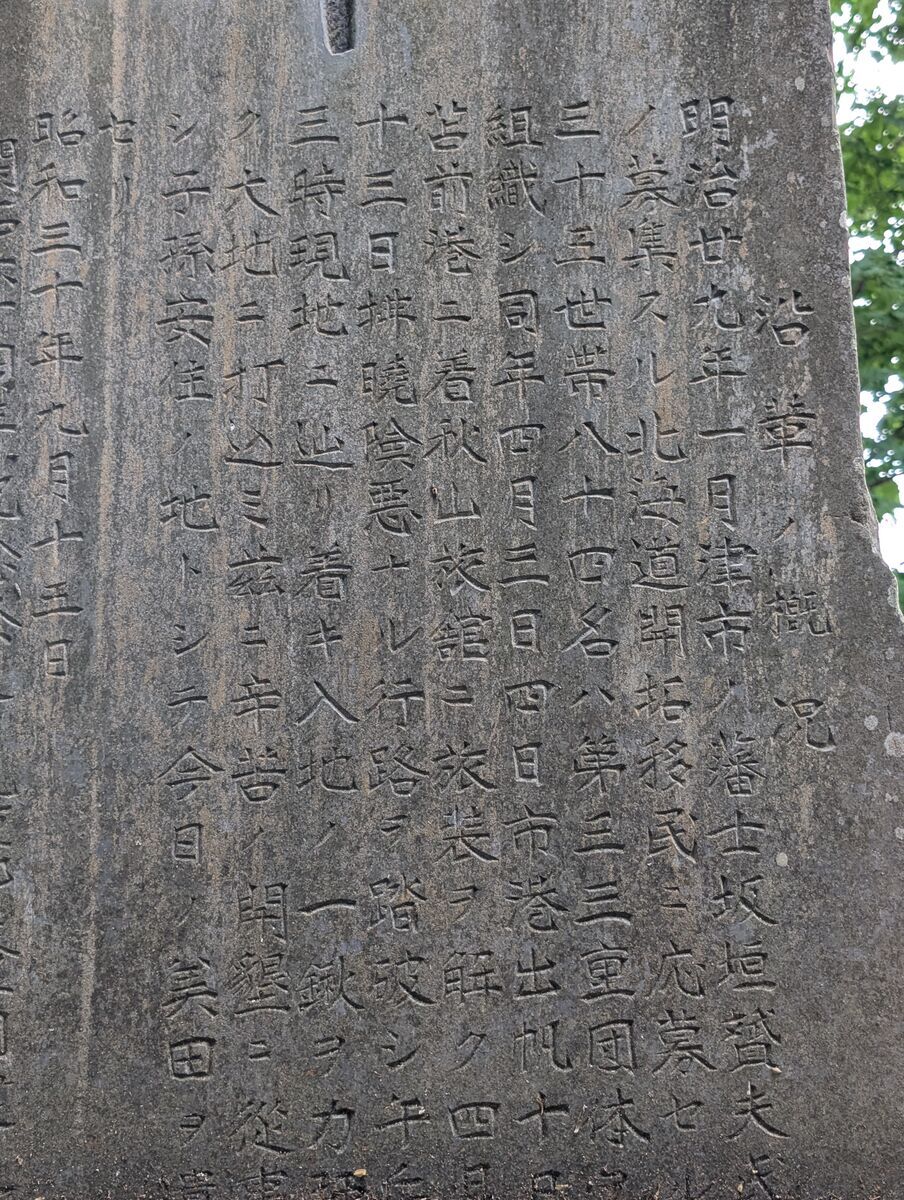 沿革ノ概況
明治廿九年一月津市ノ藩士坂垣賛夫氏
ノ募集スル北海道開拓移民ニ応募セル
三十三世帯八十四名ハ第三三重団体
組織シ同年四月三日四日市港出帆十日
苫前港ニ着秋山旅館ニ旅装ヲ解ク四月
十三日拂暁陰悪ナル行路ヲ踏破シ午后
三時現地ニ辿リ着キ入地ノ一鍬ヲ力
ク大地ニ打込ミ茲ニ辛苦イ開墾ニ從事
シ子孫安住ノ地トシテ今日ノ美田ヲ
セリ
昭和三十年九月十五日